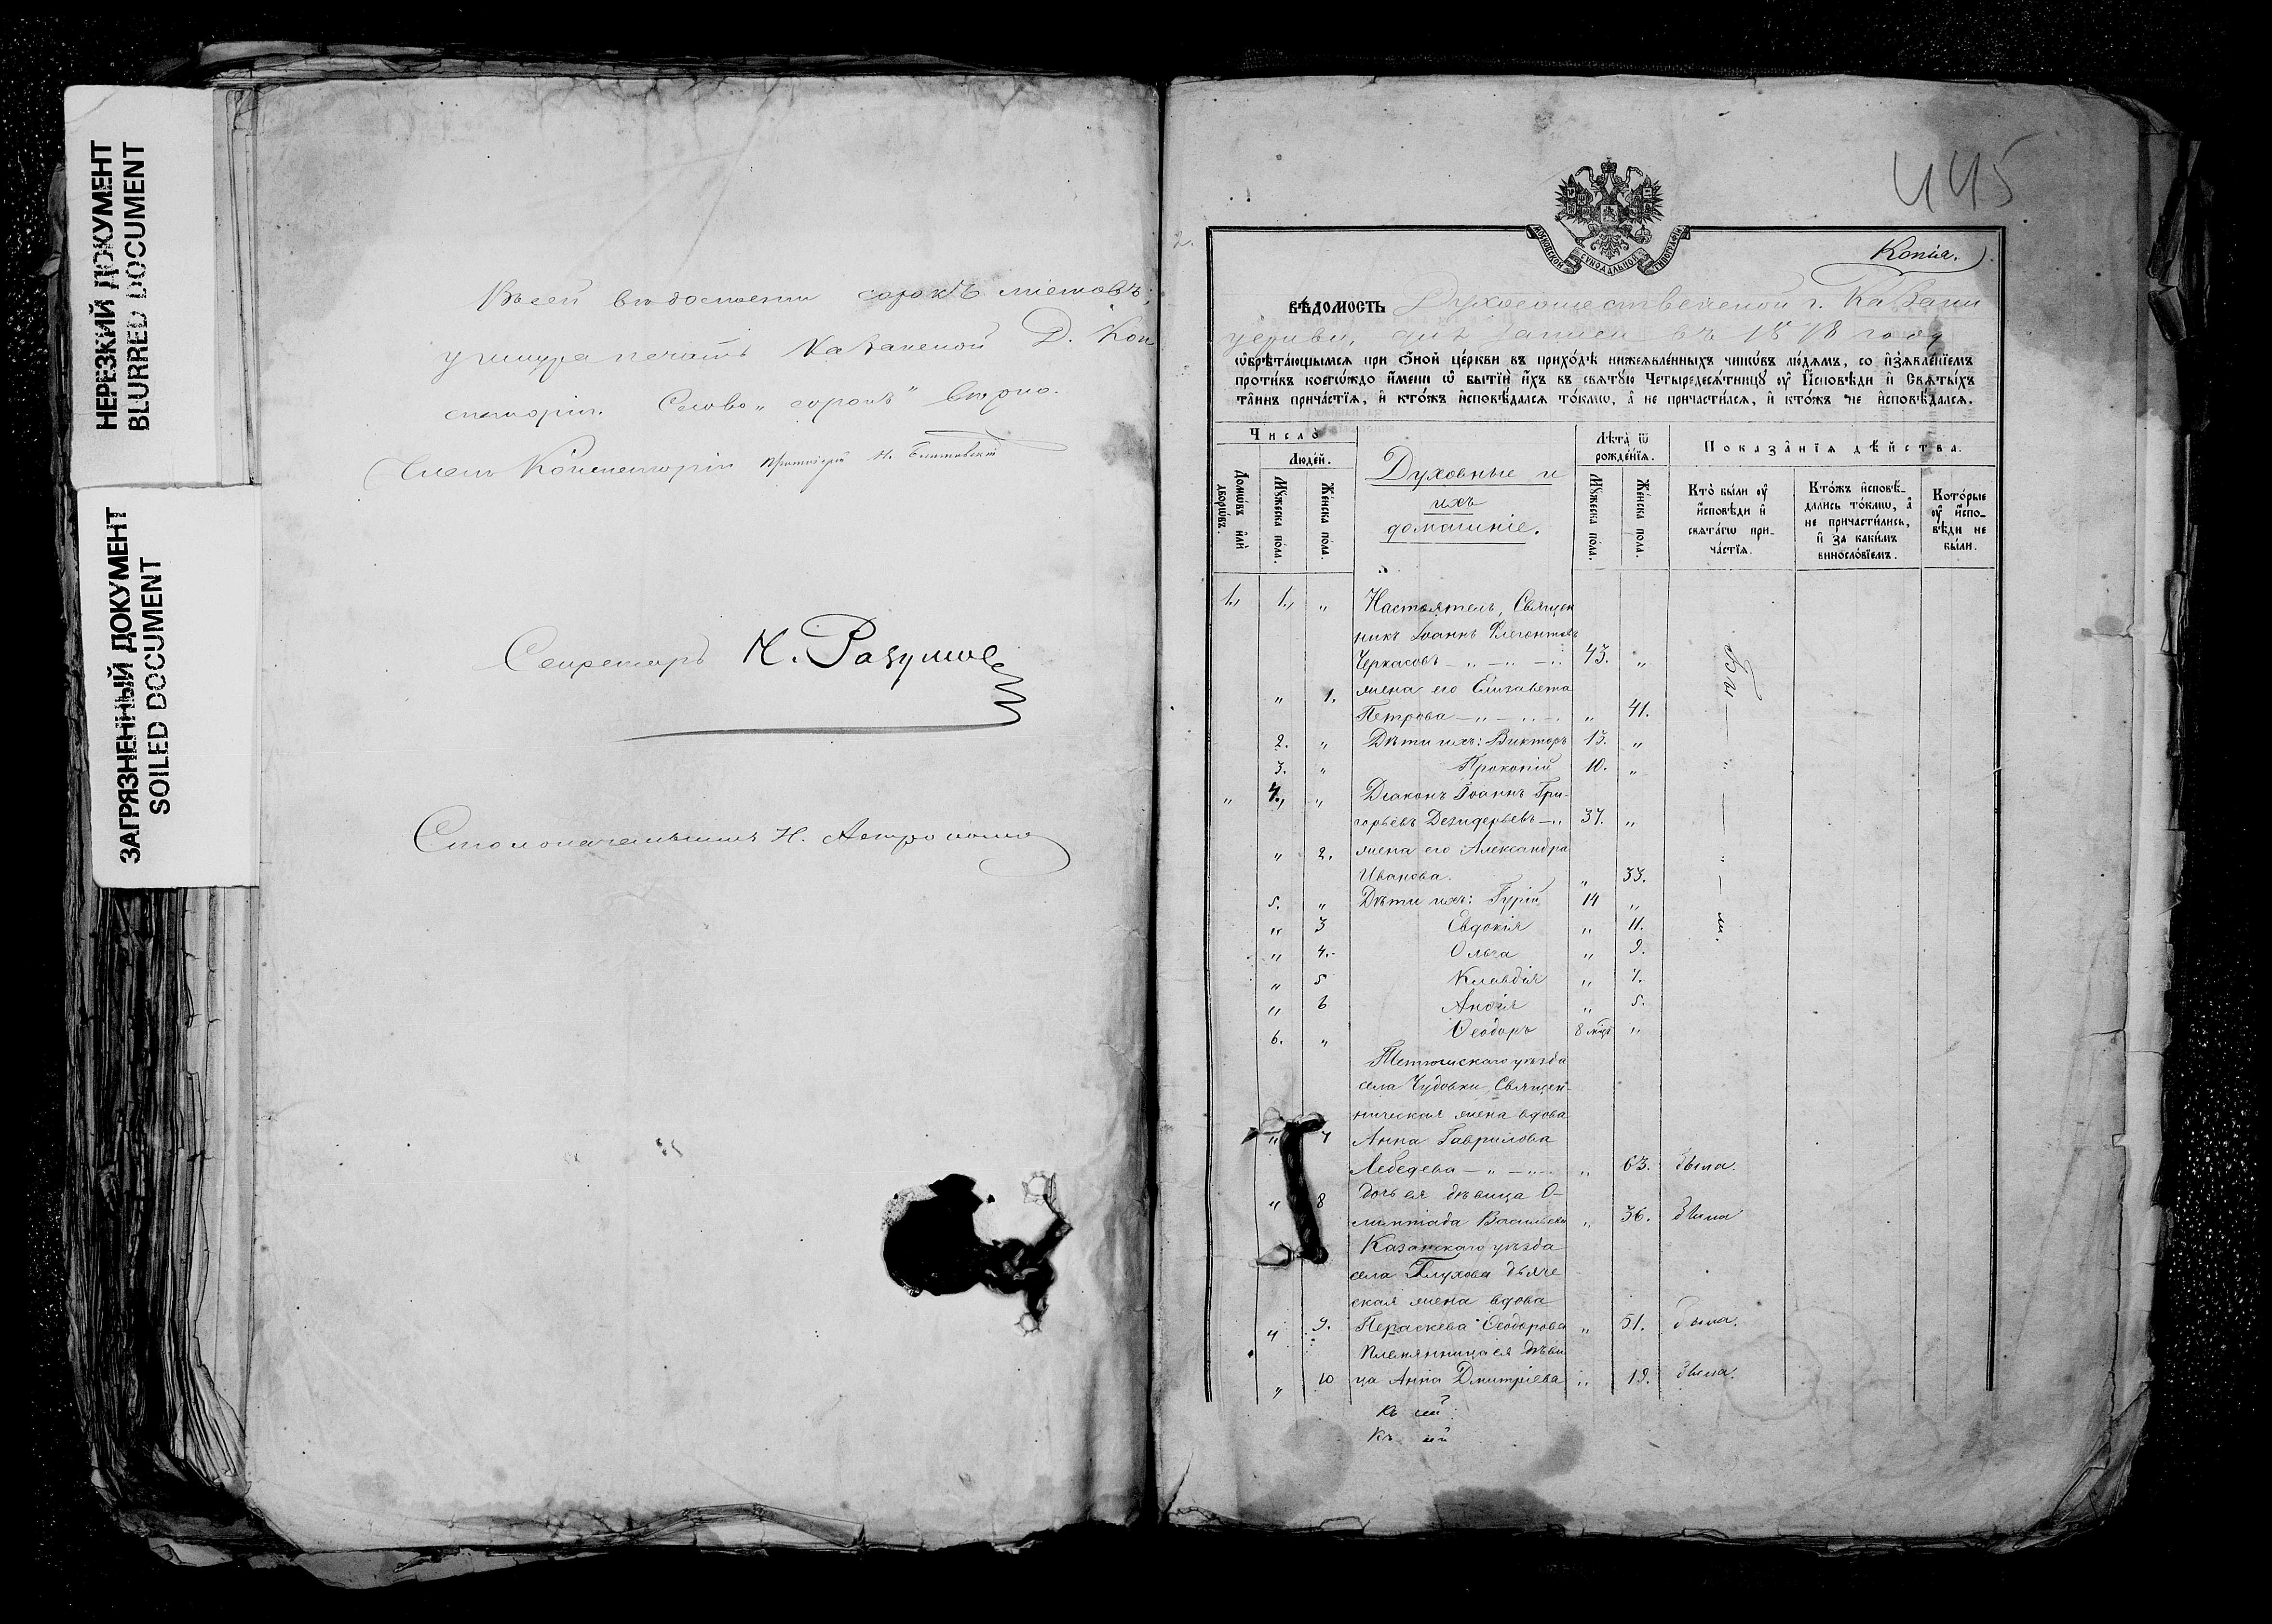 НЕРЕЗКИЙ ДОКУМЕНТ
BLURRED DOCUMENT
ЗАГРЯЗНЕННЫЙ ДОКУМЕНТ
SOILED DOCUMENT
Въ сей вѣдомости сорокъ листовъ;
у шнура печать Казанской Д. Кон
систоріи. Слово „сорокъ" вѣрно.
Членъ Консисторіи Протоіерей
Секретарь Н. Разумов
Столоначальникъ Н.
445
МОСКОВСКОЙ СѴНОДАЛЬНОЙ ТИПОГРАФІИ
Копія.
ВѢДОМОСТЬ Духосошественской г. Казани
церкви, для записи въ 1878 году
ѡбрѣта́ющымся при ѻ҆́ной це́ркви въ прихо́дѣ нижеѧвле́нныхъ чинѡ́въ лю́дѧмъ, со и҆зъѧвле́нїемъ
проти́въ коегѡ́ждо и҆́мени ѡ҆ бытїѝ и҆́хъ въ свѧту́ю Четыредесѧ́тницу ᲂу҆ И҆сповѣ́ди и҆ Свѧты́хъ
та̑инъ прича́стїѧ, и҆ кто́жъ и҆сповѣ́дался то́кмѡ, а҆ не причасти́лсѧ, и҆ кто́жъ не и҆сповѣ́дался.
Число̀
Людей.
Домѡ́въ и҆лѝ дворѡ́въ.
Мꙋ́жеска по́ла.
Же́нска по́ла.
Духовные и
ихъ
домашніе.
Лѣ́та ѿ рожде́нїѧ.
Мꙋ́жеска по́ла.
Же́нска по́ла.
Показа̑нїѧ дѣ́йства.
Кто̀ бы́ли ᲂу҆ и҆сповѣ́ди и҆ свѧта́гѡ прича́стїѧ.
Кто́жъ и҆сповѣ́дались то́кмѡ, а҆ не причасти́лись, и҆ за каки́мъ винословїемъ.
Кото́рые ᲂу҆ и҆сповѣ́ди не бы́ли.
1., 1., „ Настоятель, Священ
никъ Іоаннъ Флегонтовъ
Черкасовъ 43. „ Бы
„ 1. жена его Елизавета
Петрова „ 41.
2. „ Дѣти ихъ: Викторъ 13. „
3. „ Прокопій 10. „
„ 4., „ Діаконъ Іоаннъ Гри-
горьевъ Дезидерьевъ 37. „
„ 2. жена его Александра
Иванова. „ 33.
5. „ Дѣти ихъ: Гурій 14 „
„ 3 Евдокія „ 11. ли.
„ 4. Ольга „ 9.
„ 5 Клавдія „ 7.
„ 6 „ 5.
6. „ Ѳеодоръ 8 мцъ „
Тетюшскаго уѣзда
села Чудовки, Священ-
ническая жена вдова
„ 7 Анна Гаврилова
Лебедева „ 63. была.
„ 8 дочь ея дѣвица О-
лимпіада Васильева „ 36. была
Казанскаго уѣзда
села Глухова дьяче
ская жена вдова
„ 9. Параскева Ѳеодорова „ 51. была.
Племянница ея дѣви
„ 10 ца Анна Дмитріева „ 19. была.